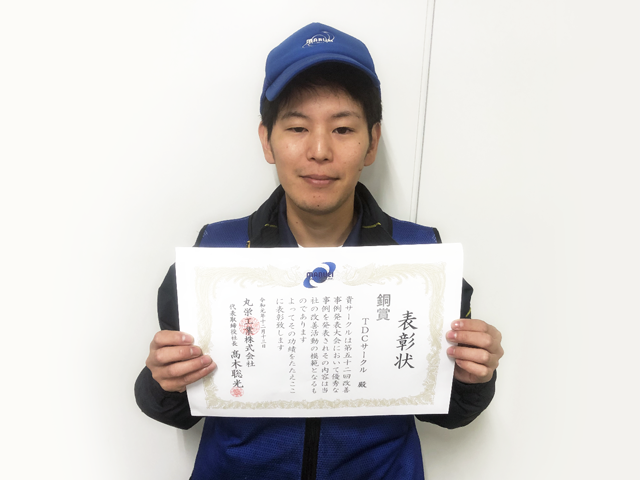 MARUEI
MARUEI
表彰状
銅賞
TDCサークル 殿
貴サークルは第五十二回改善
事例発表大会において優秀な
事例を発表されその内容は当
社の改善活動の模範となるも
のであります
よってその功績をたたえここ
に表彰致します
令和元年十二月十三日
丸栄工業株式会社
代表取締役社長 高木聡光